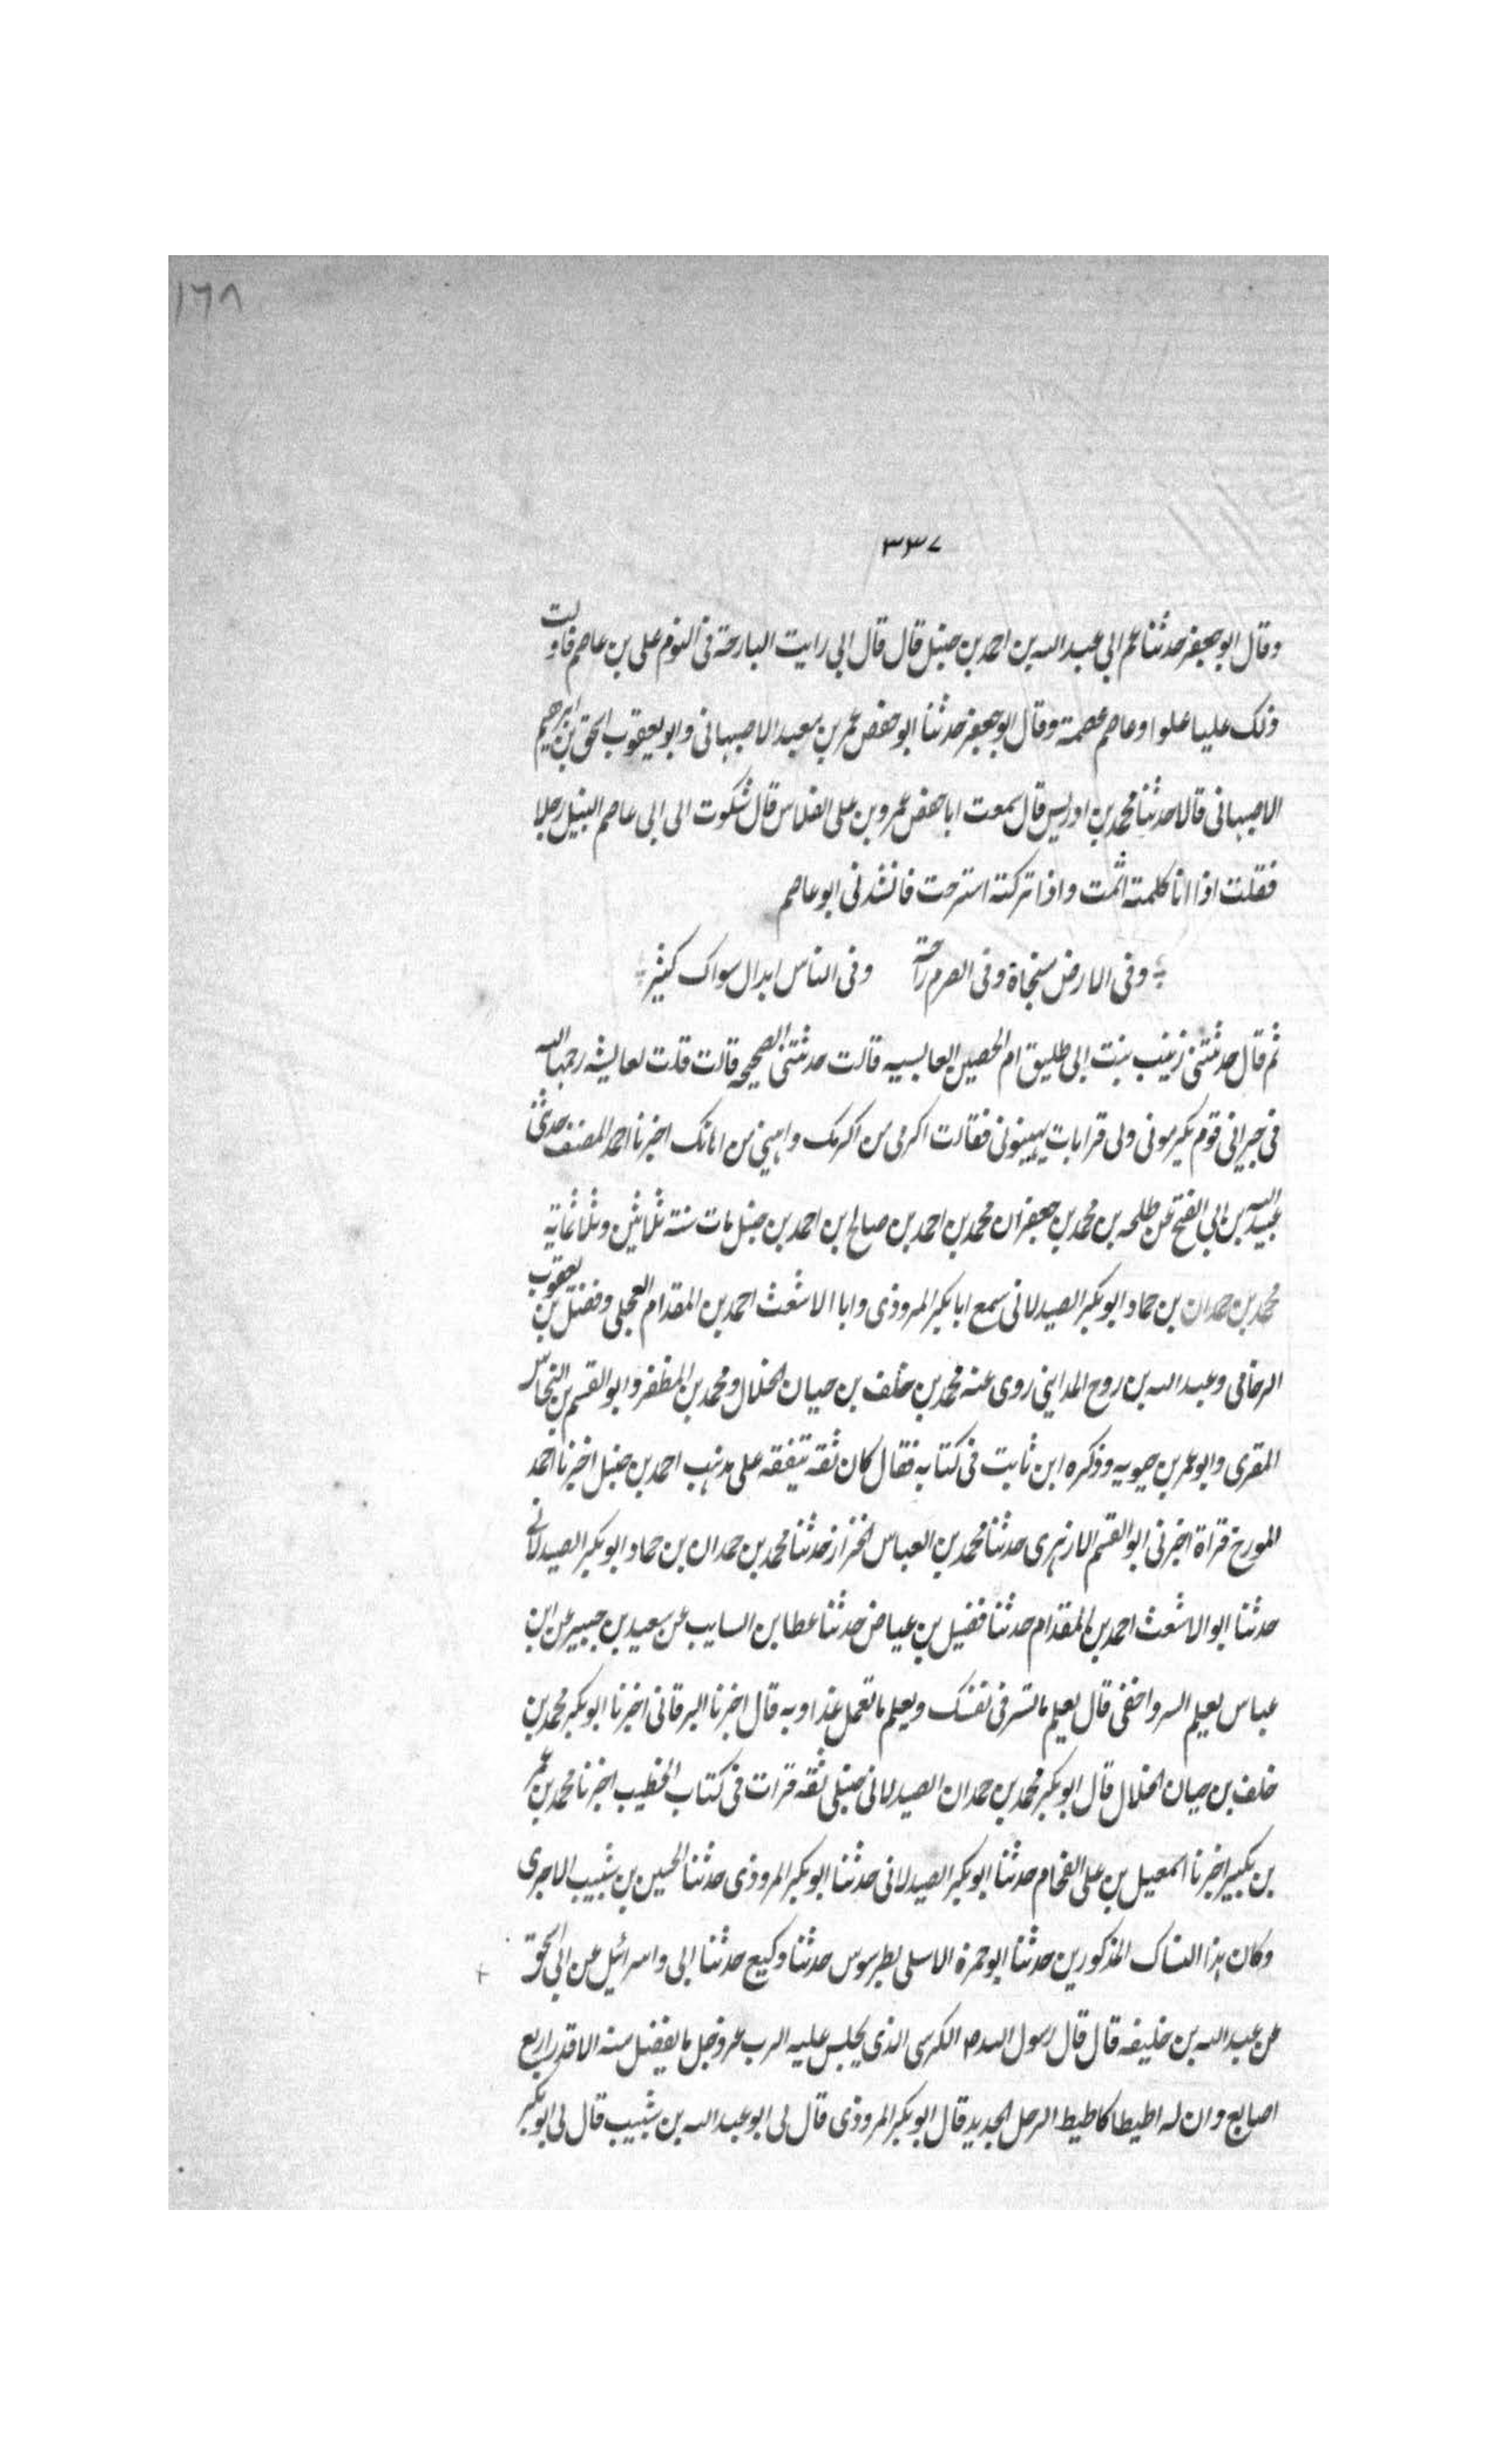 ١٦٨
٣٣٧
وقال ابو جعفر حدثنا عم ابي عبد الله بن احمد بن حنبل قال قال ابي رايت البارحة في النوم علي بن عاصم فاولت
ذلك عليا علوا وعاصم عصمة وقال ابو جعفر حدثنا ابو حفص عمر بن سعيد الاصبهاني وابو يعقوب اسحق بن ابرهيم
الاصبهاني قالا حدثنا محمد بن ادريس قال سمعت ابا حفص عمرو بن علي الفلاس قال شكوت الى ابي عاصم النبيل رجلا
فقلت اذا انا كلمته اثمت واذا تركته استرحت فانشدني ابو عاصم
وفي الارض منجاة وفي الصرم راحة وفي الناس ابدال سواك كثير
ثم قال حدثتني زينب بنت ابي طليق ام الحصين قالت حدثتني الصحيحه قالت قلت لعايشه رحمها الله
في جيراني قوم يكرموني ولي قرابات يهينوني فقالت اكرمي من اكرمك واهيني من اهانك اخبرنا احمد المصنف حدثني
عبيد الله بن ابي الفتح عن طلحه بن محمد بن جعفر ان محمد بن احمد بن صالح بن احمد بن حنبل مات سنة ثلاثين وثلاثماية
محمد بن حمدان بن حماد ابو بكر الصيدلاني سمع ابا بكر المروذي وابا الاشعث احمد بن المقدام العجلي وفضل بن يعقوب
الرخامي وعبد الله بن روح المدايني روى عنه محمد بن خلف بن حيان الخلال ومحمد بن المظفر وابو القسم بن النحاس
المقرى وابو عمر بن حيويه وذكره ابن ثابت في كتابه فقال كان ثقه يتفقه على مذهب احمد بن حنبل اخبرنا احمد
المورخ قراة اخبرني ابو القسم الازهرى حدثنا محمد بن العباس الخزاز حدثنا محمد بن حمدان بن حماد ابو بكر الصيدلاني
حدثنا ابو الاشعث احمد بن المقدام حدثنا فضيل بن عياض حدثنا عطا بن السايب عن سعيد بن جبير عن ابن
عباس يعلم السر واخفى قال يعلم ما تسر في نفسك ويعلم ما تعمل غدا وبه قال اخبرنا البرقاني اخبرنا ابو بكر محمد بن
خلف بن حيان الخلال قال ابو بكر محمد بن حمدان الصيدلاني حنبلي ثقه قرات في كتاب الخطيب اخبرنا محمد بن عمر
بن بكير اخبرنا اسمعيل بن علي الفحام حدثنا ابو بكر الصيدلاني حدثنا ابو بكر المروذي حدثنا الحسين بن شبيب الاجرى
وكان هذا النساك المذكورين حدثنا ابو حمزة الاسلمي بطرسوس حدثنا وكيع حدثنا ابي واسرائيل عن ابي اسحق
عن عبد الله بن خليفه قال قال رسول الله ص الكرسي الذي يجلس عليه الرب عز وجل ما يفضل منه الا قدر اربع
اصابع وان له اطيطا كاطيط الرحل الجديد قال ابو بكر المروذي قال لي ابو عبد الله بن شبيب قال لي ابو بكر